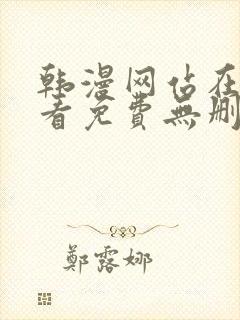 韩漫网站在
看免費無删
鄭露娜